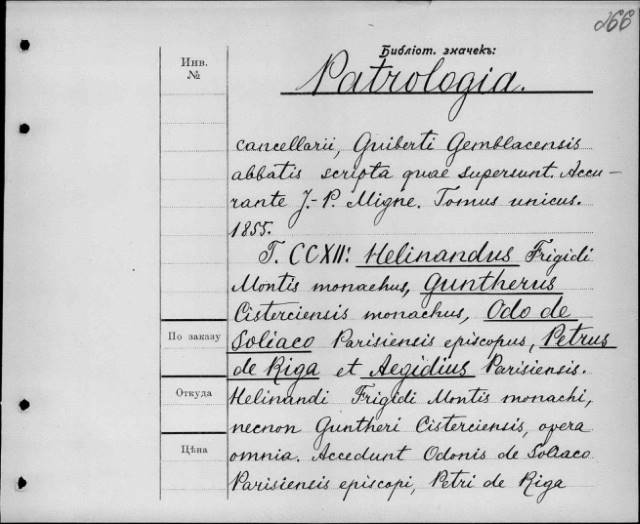 266
Библіот. значекъ:
Инв.
№
Patrologia.
cancellarii, Guiberti Gemblacensis
abbatis scripta quae supersunt. Accu-
rante J.-P. Migne. Tomus unicus.
1855.
T. CCXII: Helinandus Frigidi
Montis monachus, Guntherus
Cisterciensis monachus, Odo de
По заказу
Soliaco Parisiensis episcopus, Petrus
de Riga et Aegidius Parisiensis.
Откуда
Helinandi Frigidi Montis monachi,
necnon Guntheri Cisterciensis, opera
Цѣна
omnia. Accedunt Odonis de Soliaco
Parisiensis episcopi, Petri de Riga